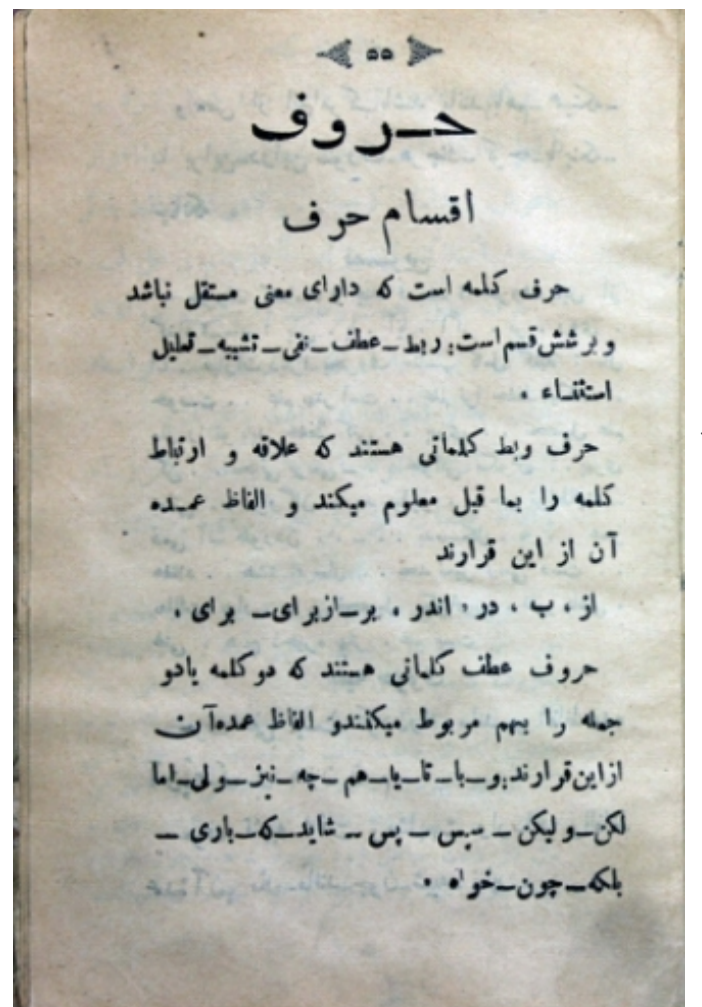 ۵۵
حروف
اقسام حرف
حرف کلمه است که دارای معنی مستقل نباشد
وبرشش قسم است: ربط_عطف_نفی_تشبیه_تعلیل
استثناء .
حرف وبط کلماتی هستند که علاقه و ارتباط
کلمه را بما قبل معلوم میکند و الفاظ عمده
آن از این قرارند
از ، ب ، در ، اندر ، بر_ازبرای_ برای .
حروف عطف کلماتی هستند که دو کلمه یادو
جمله را بهم مربوط میکنندو الفاظ عمده‌آن
ازاین‌قرارند:و_با_تا_یا_هم_چه_نیز_ولی_اما
لکن_ولیکن_سپس_پس_شاید_که_باری_
بلکه_چون_خواه .